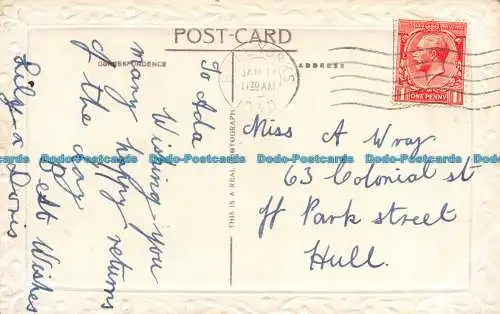 POST-CARD
CORRESPONDENCE
ADDRESS
To Ada
Wishing you
many happy returns
of the day
Best Wishes
Lily & Doris
THIS IS A REAL PHOTOGRAPH
JAN
11 30 AM
ONE PENNY
Miss A Wray
63 Colonial st
ff Park street
Hull.
Dodo-Postcards Dodo-Postcards Dodo-Postcards Dodo-Postcards Dodo-Postcards Dodo-Postcards